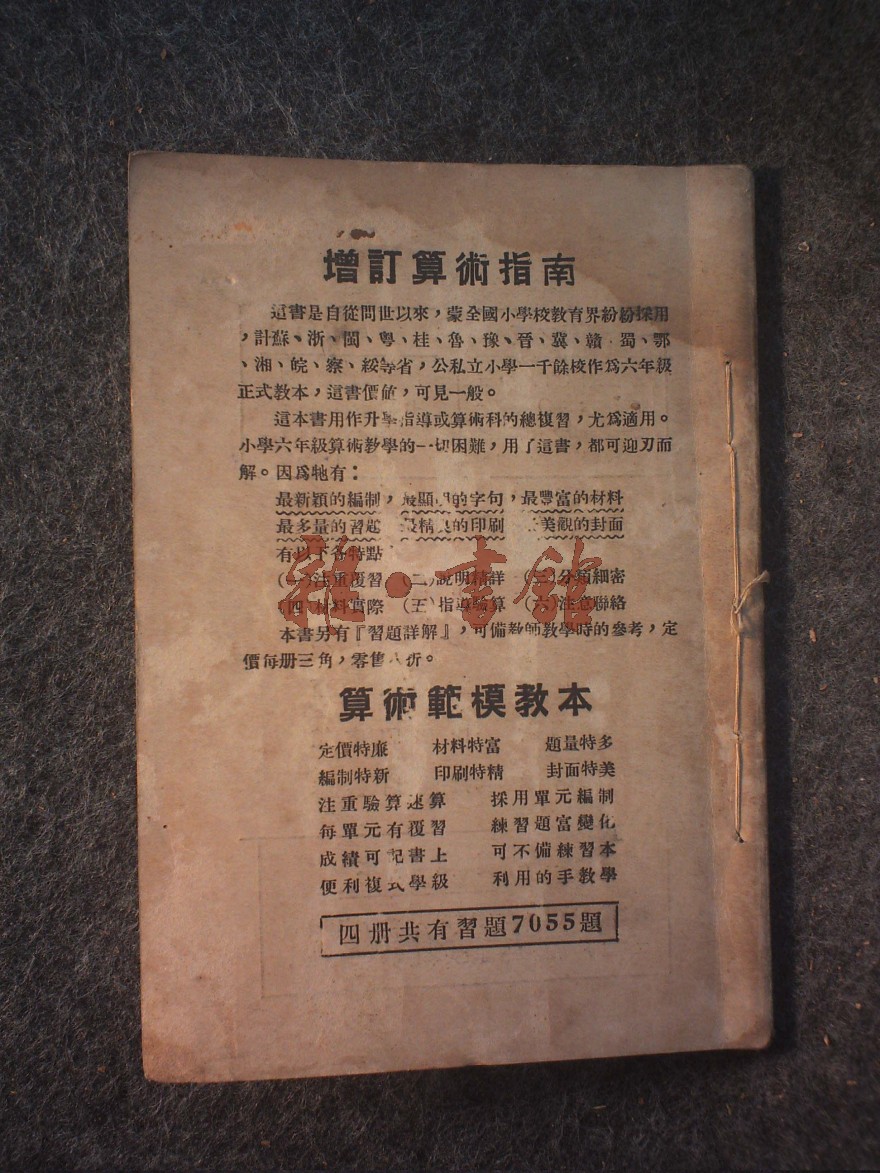 增訂算術指南
這書是自從問世以來，蒙全國小學校教育界紛紛採用
，計蘇、浙、閩、粵、桂、魯、豫、晉、冀、贛、蜀、鄂
、湘、皖、察、綏等省，公私立小學一千餘校作爲六年級
正式教本，這書價值，可見一般。
這本書用作升學指導或算術科的總複習，尤爲適用。
小學六年級算術教學的一切困難，用了這書，都可迎刃而
解。因爲牠有：
最新穎的編制，最顯明的字句，最豐富的材料
最多量的習題 最精良的印刷 美觀的封面
有以下各特點
(一)注重覆習 (二)說明精詳 (三)分類細密
(四)材料實際 (五)指導驗算 (六)注意聯絡
本書另有『習題詳解』，可備教師教學時的參考，定
價每册三角，零售 折。
算術範模教本
定價特廉 材料特富 題量特多
編制特新 印刷特精 封面特美
注重驗算速算 採用單元編制
每單元有覆習 練習題富變化
成績可記書上 可不備練習本
便利複式學級 利用的手教學
四册共有習題7055題
雜·書館